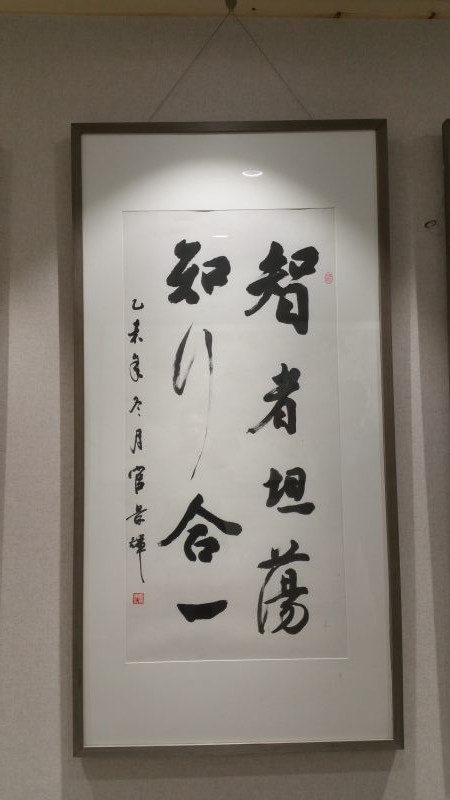 智者坦蕩
知行合一
乙未年冬月官景輝